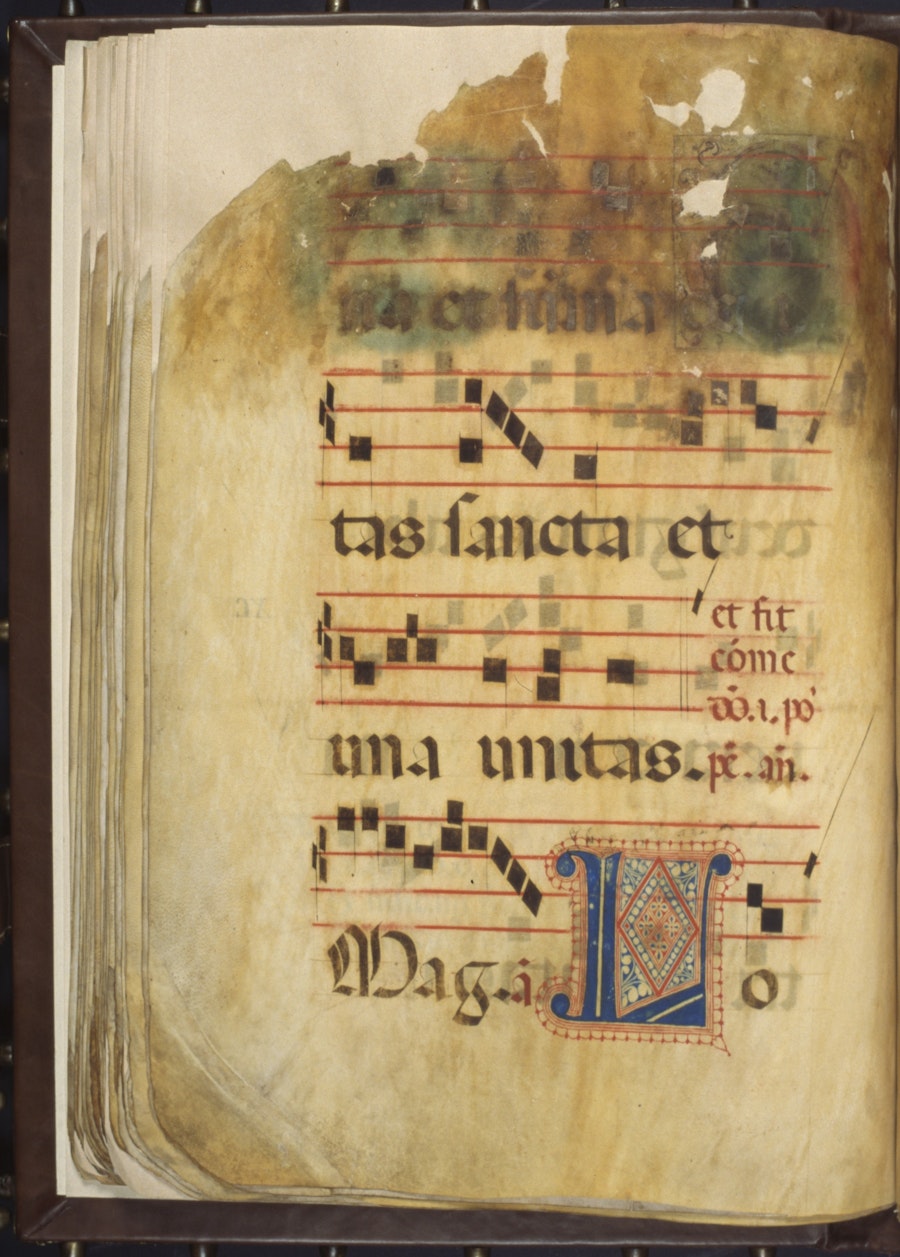 na et summa
tas sancta et
et fit
cōme
dō. i. po'
una unitas. pē. añ.
Mag. ā L o